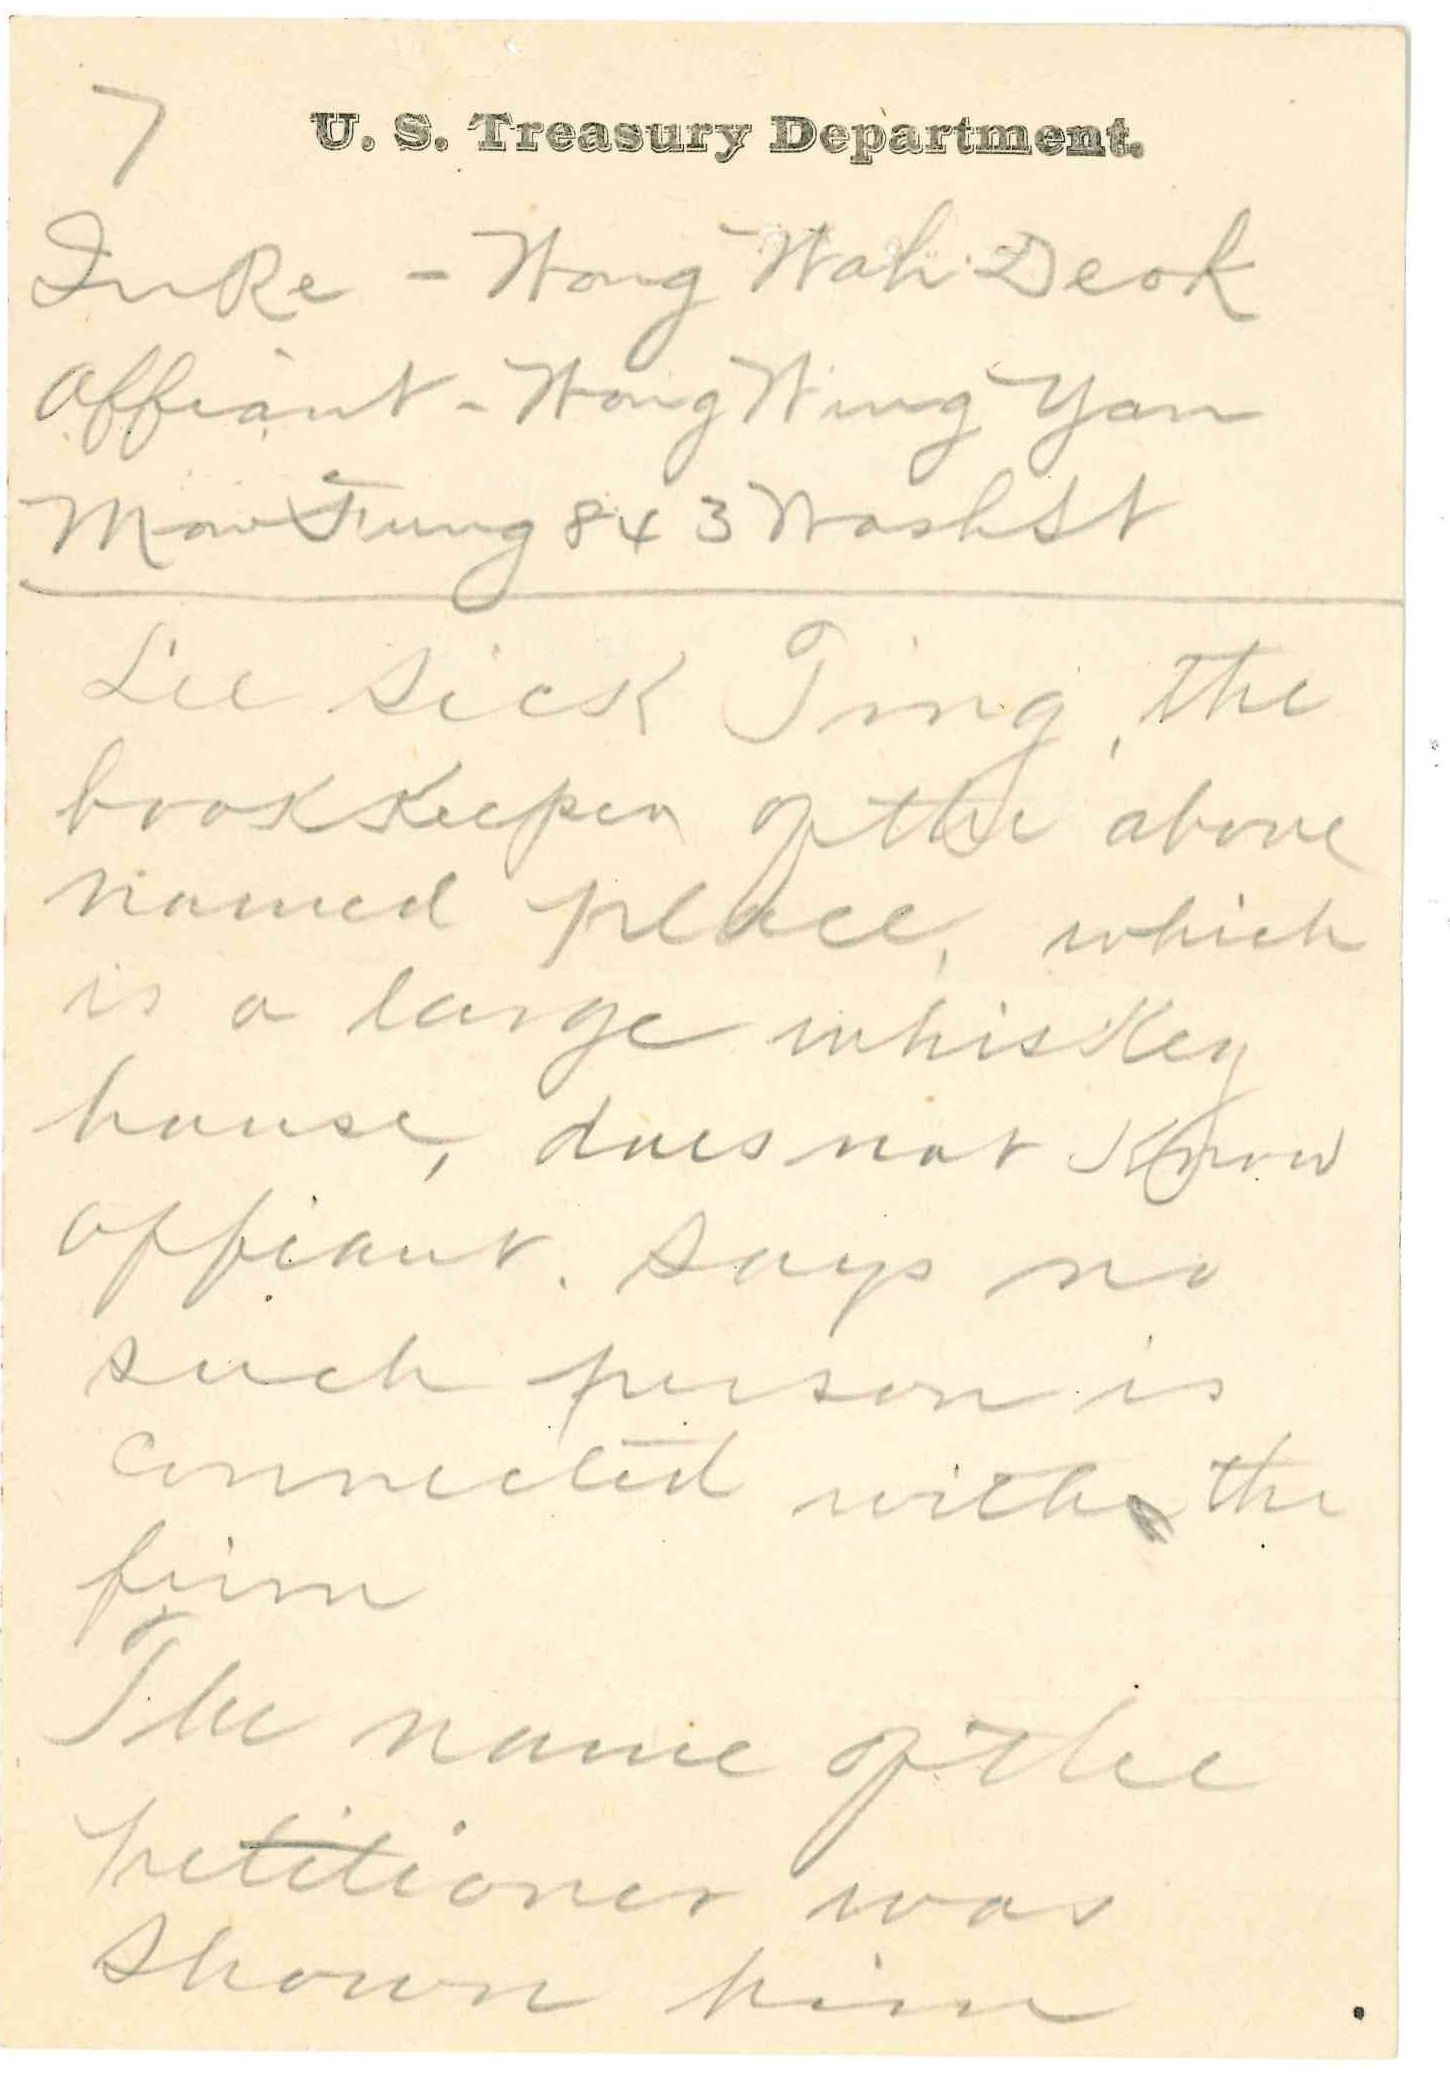 7
U. S. Treasury Department.
In Re - Wong Wah Deok
Affiant - Wong Wing Yan
Mow Fung 843 Wash St
Lee Sick Ting, the
bookkeeper of the above
named place, which
is a large whiskey
house, does not know
affiant. Says no
such person is
connected with the
firm
The name of the
petitioner was
shown him